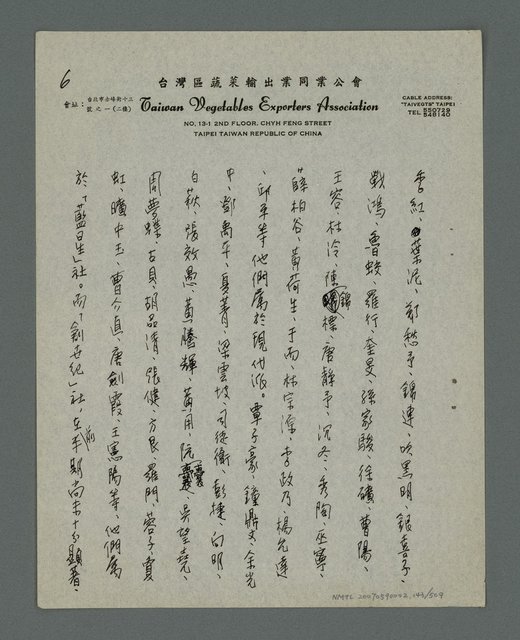 6
台灣區蔬菜輸出業同業公會
會址:台北市赤峰街十三號之一(二樓)
Taiwan Vegetables Exporters Association
NO. 13-1 2ND FLOOR. CHYH FENG STREET
TAIPEI TAIWAN REPUBLIC OF CHINA
CABLE ADDRESS:
"TAIVEGTS" TAIPEI
TEL 550729
548140
季紅、葉泥、鄭愁予、錦連、吹黑明、銀喜子、
戰鴻、魯蛟、羅行、奎旻、孫家駿、徐礦、曹陽、
王容、林泠、陳錦標、唐靜予、沉冬、秀陶、巫寧、
薛柏谷、黃荷生、于而、林宗源、李政乃、楊允達
、邱平等他們屬於現代派。覃子豪、鍾鼎文、余光
中、鄧禹平、夏菁、梁雲坡、司徒衛、彭捷、向明、
白萩、張效愚、黃騰輝、黃用、阮囊、吳望堯、
周夢蝶、古貝、胡品清、張健、方艮、羅門、蓉子、夐
虹、曠中玉、曹介直、唐劍霞、王憲陽等、他們屬
於「藍星」社。而「創世紀」社,在前半期尚未十分顯著、
NMTL 20070590002, 143/509